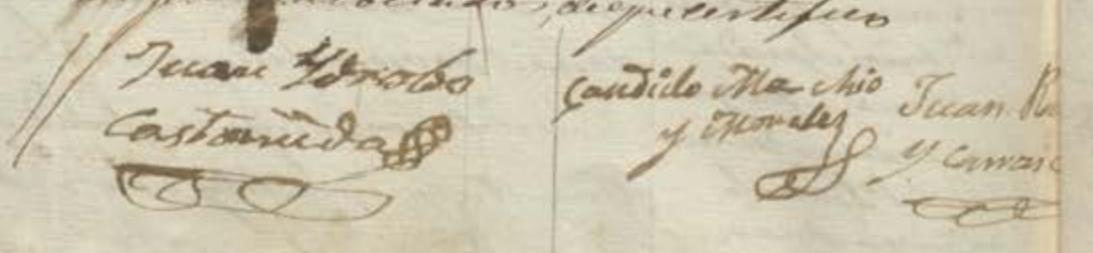 de que certifico
Juan Ydrobo
Castañeda
Candido Ma chio
y Morales
Juan
y